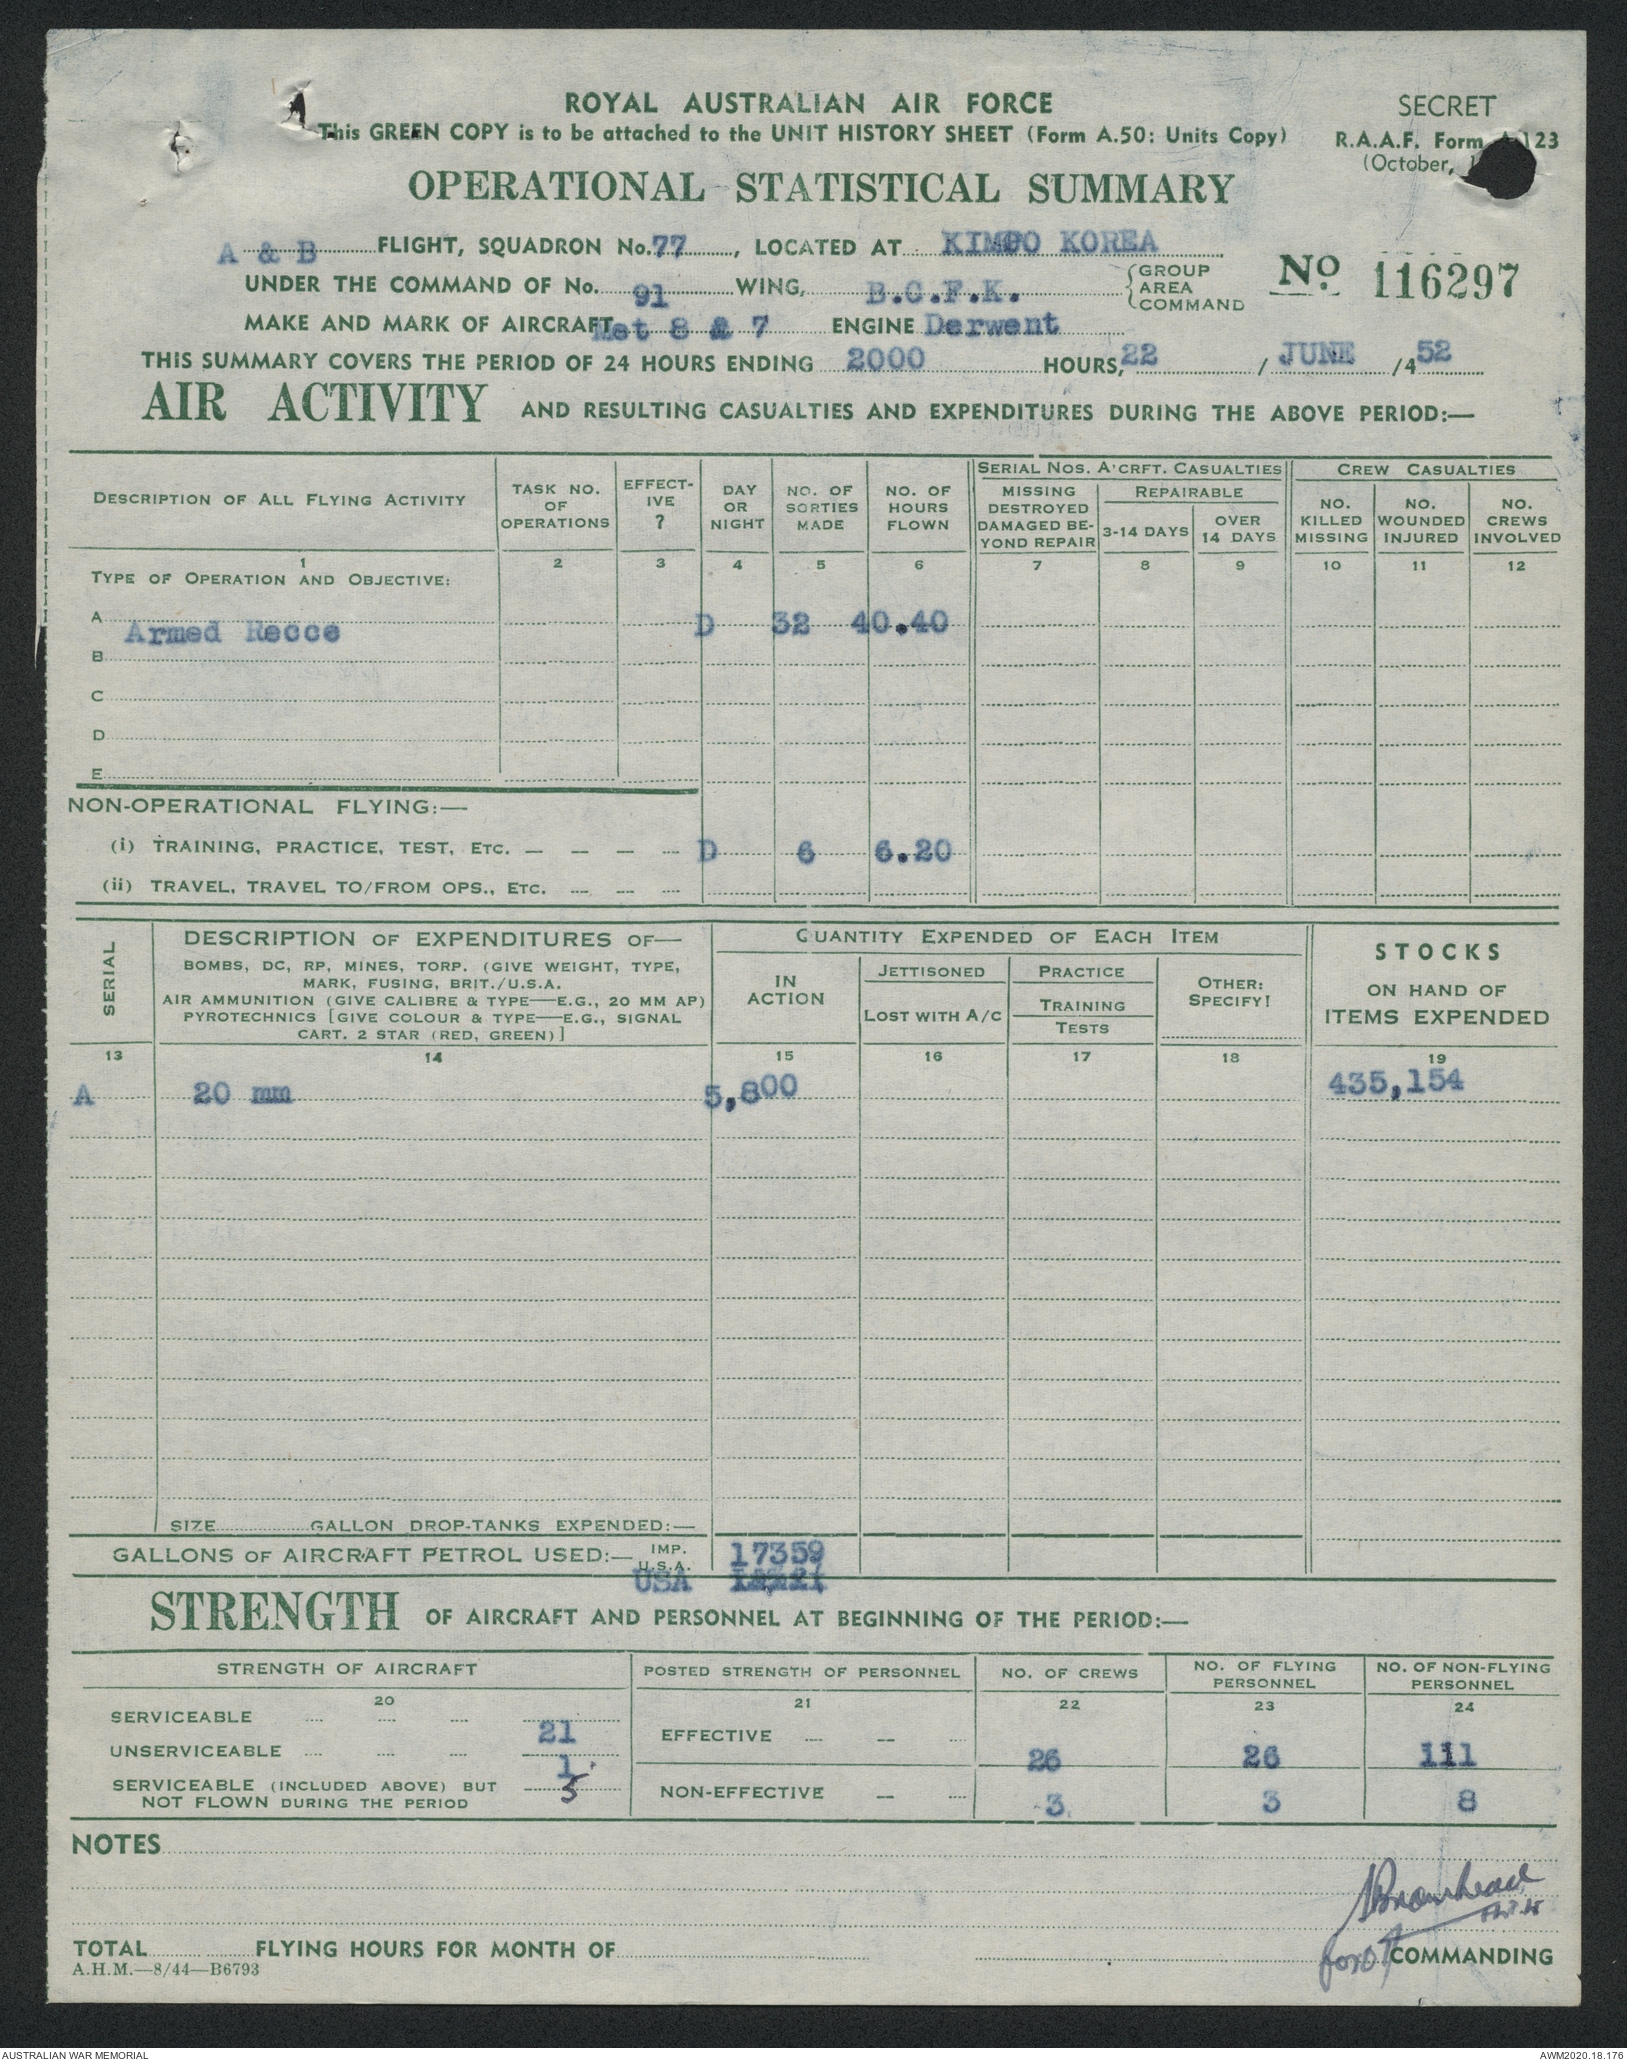 ROYAL AUSTRALIAN AIR FORCE
SECRET
This GREEN COPY is to be attached to the UNIT HISTORY SHEET (Form A.50: Units Copy)
R.A.A.F. Form A.123
(October,
OPERATIONAL STATISTICAL SUMMARY
A & B FLIGHT, SQUADRON No. 77, LOCATED AT KIMPO KOREA
UNDER THE COMMAND OF No. 91 WING, B.C.F.K. {GROUP AREA COMMAND
No 116297
MAKE AND MARK OF AIRCRAFT Met 8 & 7 ENGINE Derwent
THIS SUMMARY COVERS THE PERIOD OF 24 HOURS ENDING 2000 HOURS, 22 / JUNE /4 52
AIR ACTIVITY AND RESULTING CASUALTIES AND EXPENDITURES DURING THE ABOVE PERIOD:—
DESCRIPTION OF ALL FLYING ACTIVITY
TASK NO. OF OPERATIONS
EFFECT-IVE ?
DAY OR NIGHT
NO. OF SORTIES MADE
NO. OF HOURS FLOWN
SERIAL NOS. A'CRFT. CASUALTIES
MISSING DESTROYED DAMAGED BE-YOND REPAIR
REPAIRABLE
3-14 DAYS
OVER 14 DAYS
CREW CASUALTIES
NO. KILLED MISSING
NO. WOUNDED INJURED
NO. CREWS INVOLVED
1 2 3 4 5 6 7 8 9 10 11 12
TYPE OF OPERATION AND OBJECTIVE:
A Armed Recce D 32 40.40
B
C
D
E
NON-OPERATIONAL FLYING:—
(i) TRAINING, PRACTICE, TEST, ETC. — — — — D 6 6.20
(ii) TRAVEL, TRAVEL TO/FROM OPS., ETC. — — —
SERIAL
DESCRIPTION OF EXPENDITURES OF—
BOMBS, DC, RP, MINES, TORP. (GIVE WEIGHT, TYPE,
MARK, FUSING, BRIT./U.S.A.
AIR AMMUNITION (GIVE CALIBRE & TYPE—E.G., 20 MM AP)
PYROTECHNICS [GIVE COLOUR & TYPE—E.G., SIGNAL
CART. 2 STAR (RED, GREEN)]
QUANTITY EXPENDED OF EACH ITEM
IN ACTION
JETTISONED
LOST WITH A/C
PRACTICE
TRAINING
TESTS
OTHER: SPECIFY!
STOCKS
ON HAND OF
ITEMS EXPENDED
13 14 15 16 17 18 19
A 20 mm 5,800 435,154
SIZE GALLON DROP-TANKS EXPENDED:—
GALLONS OF AIRCRAFT PETROL USED:— IMP. 17359
U.S.A.
USA
STRENGTH OF AIRCRAFT AND PERSONNEL AT BEGINNING OF THE PERIOD:—
STRENGTH OF AIRCRAFT
POSTED STRENGTH OF PERSONNEL
NO. OF CREWS
NO. OF FLYING PERSONNEL
NO. OF NON-FLYING PERSONNEL
20 21 22 23 24
SERVICEABLE 21
UNSERVICEABLE 1
SERVICEABLE (INCLUDED ABOVE) BUT
NOT FLOWN DURING THE PERIOD 5
EFFECTIVE 26 26 111
NON-EFFECTIVE 3 3 8
NOTES
Bromhead
Flt Lt
TOTAL FLYING HOURS FOR MONTH OF
for COMMANDING
A.H.M.—8/44—B6793
AUSTRALIAN WAR MEMORIAL
AWM2020.18.176